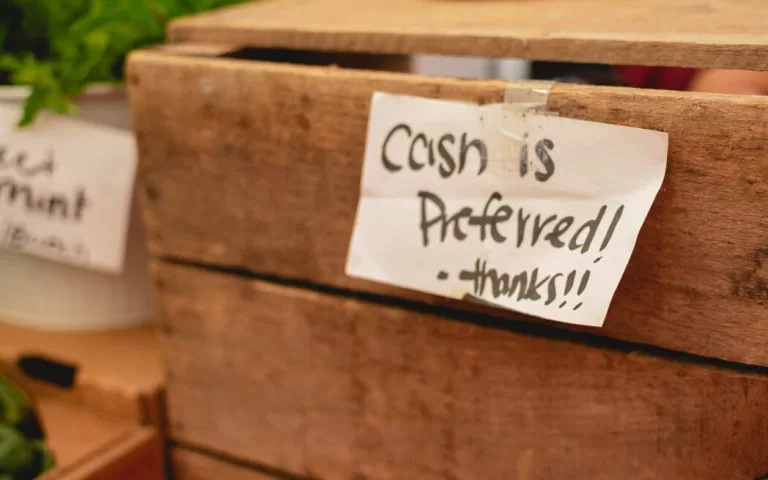 mint
Cash is
Preferred!
- thanks!!